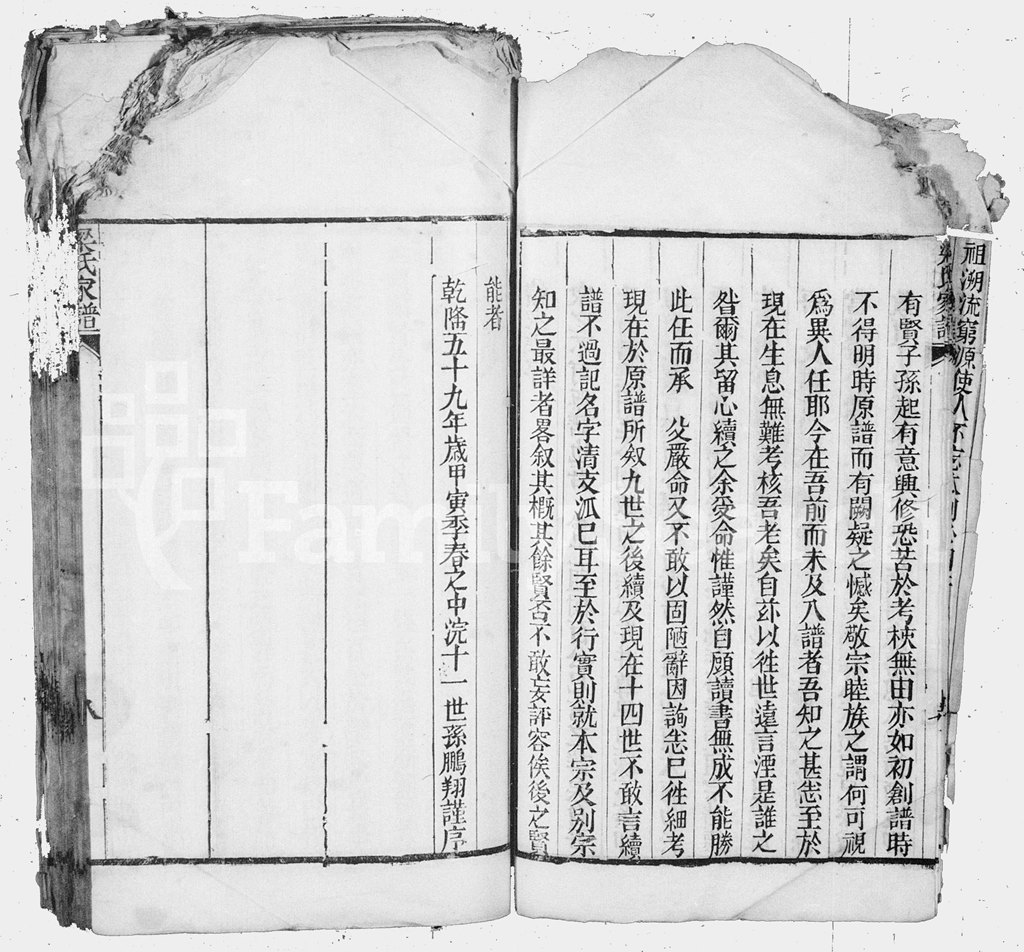 祖溯流窮源使人不忘
有賢子孫起有意興修恐苦於考核無由亦如初創譜時
不得明時原譜而有闕疑之憾矣敬宗睦族之謂何可視
爲異人任耶今在吾前而未及入譜者吾知之甚悉至於
現在生息無難考核吾老矣自玆以徃世遠言湮是誰之
咎爾其留心續之余受命惟謹然自願讀書無成不能勝
此任而承　父嚴命又不敢以固陋辭因詢悉已徃細考
現在於原譜所叙九世之後續及現在十四世不敢言續
譜不過記名字清支派已耳至於行實則就本宗及别宗
知之最詳者畧叙其概其餘賢否不敢妄評容俟後之賢
能者
乾隆五十九年歲甲寅季春之中浣十一世孫鵬翔謹序
氏家譜
氏家譜
八